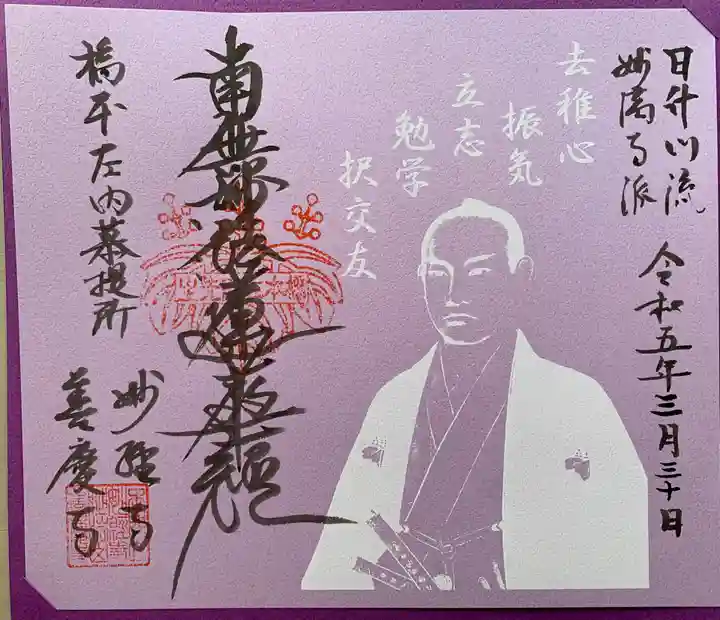 日什门流
妙満寺派
令和五年三月三十日
去稚心
振気
立志
勉学
択交友
南無妙法蓮華経
橋本左内菩提所
妙経寺
善慶寺